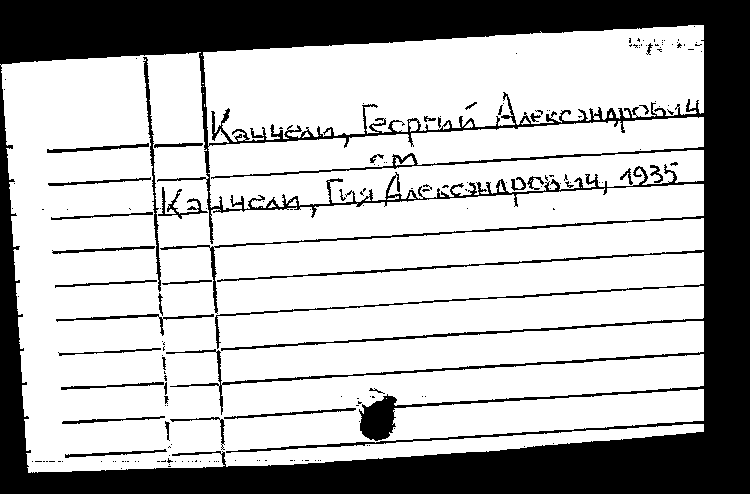 Канчели, Георгий Александрович
см
Канчели, Гия Александрович, 1935